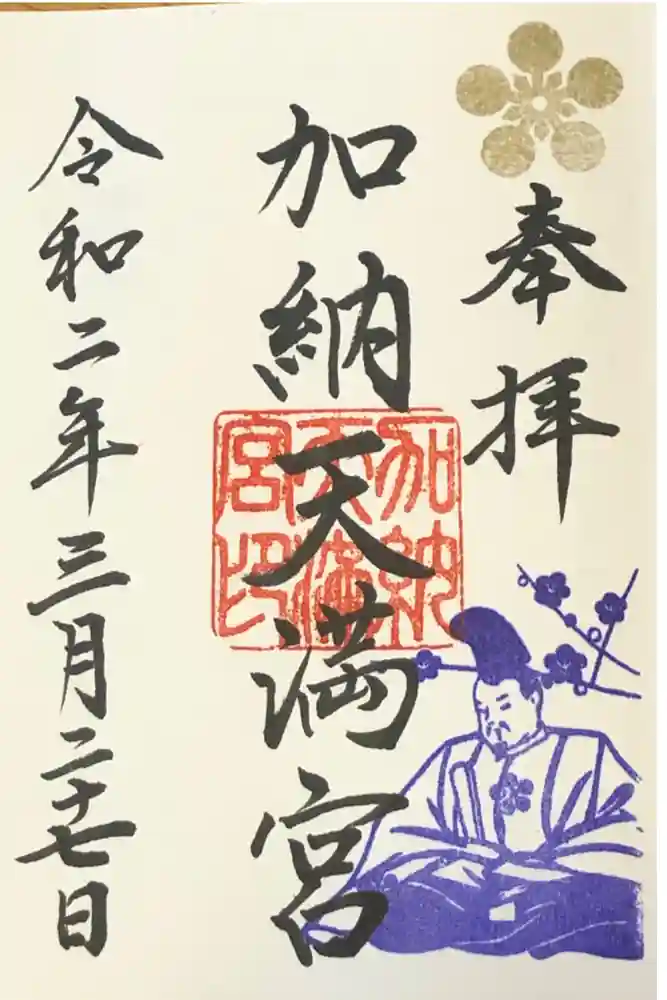 奉拝
加納天満宮
加納天満宮印
令和二年三月二十七日